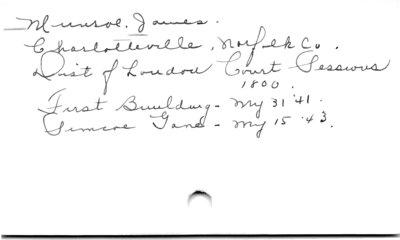 Munroe, James.
Charlotteville, Norfolk Co.
Dist of London Court Sessions
1800.
First Building - My 31 '41.
Simcoe Gano - My 15 '43.